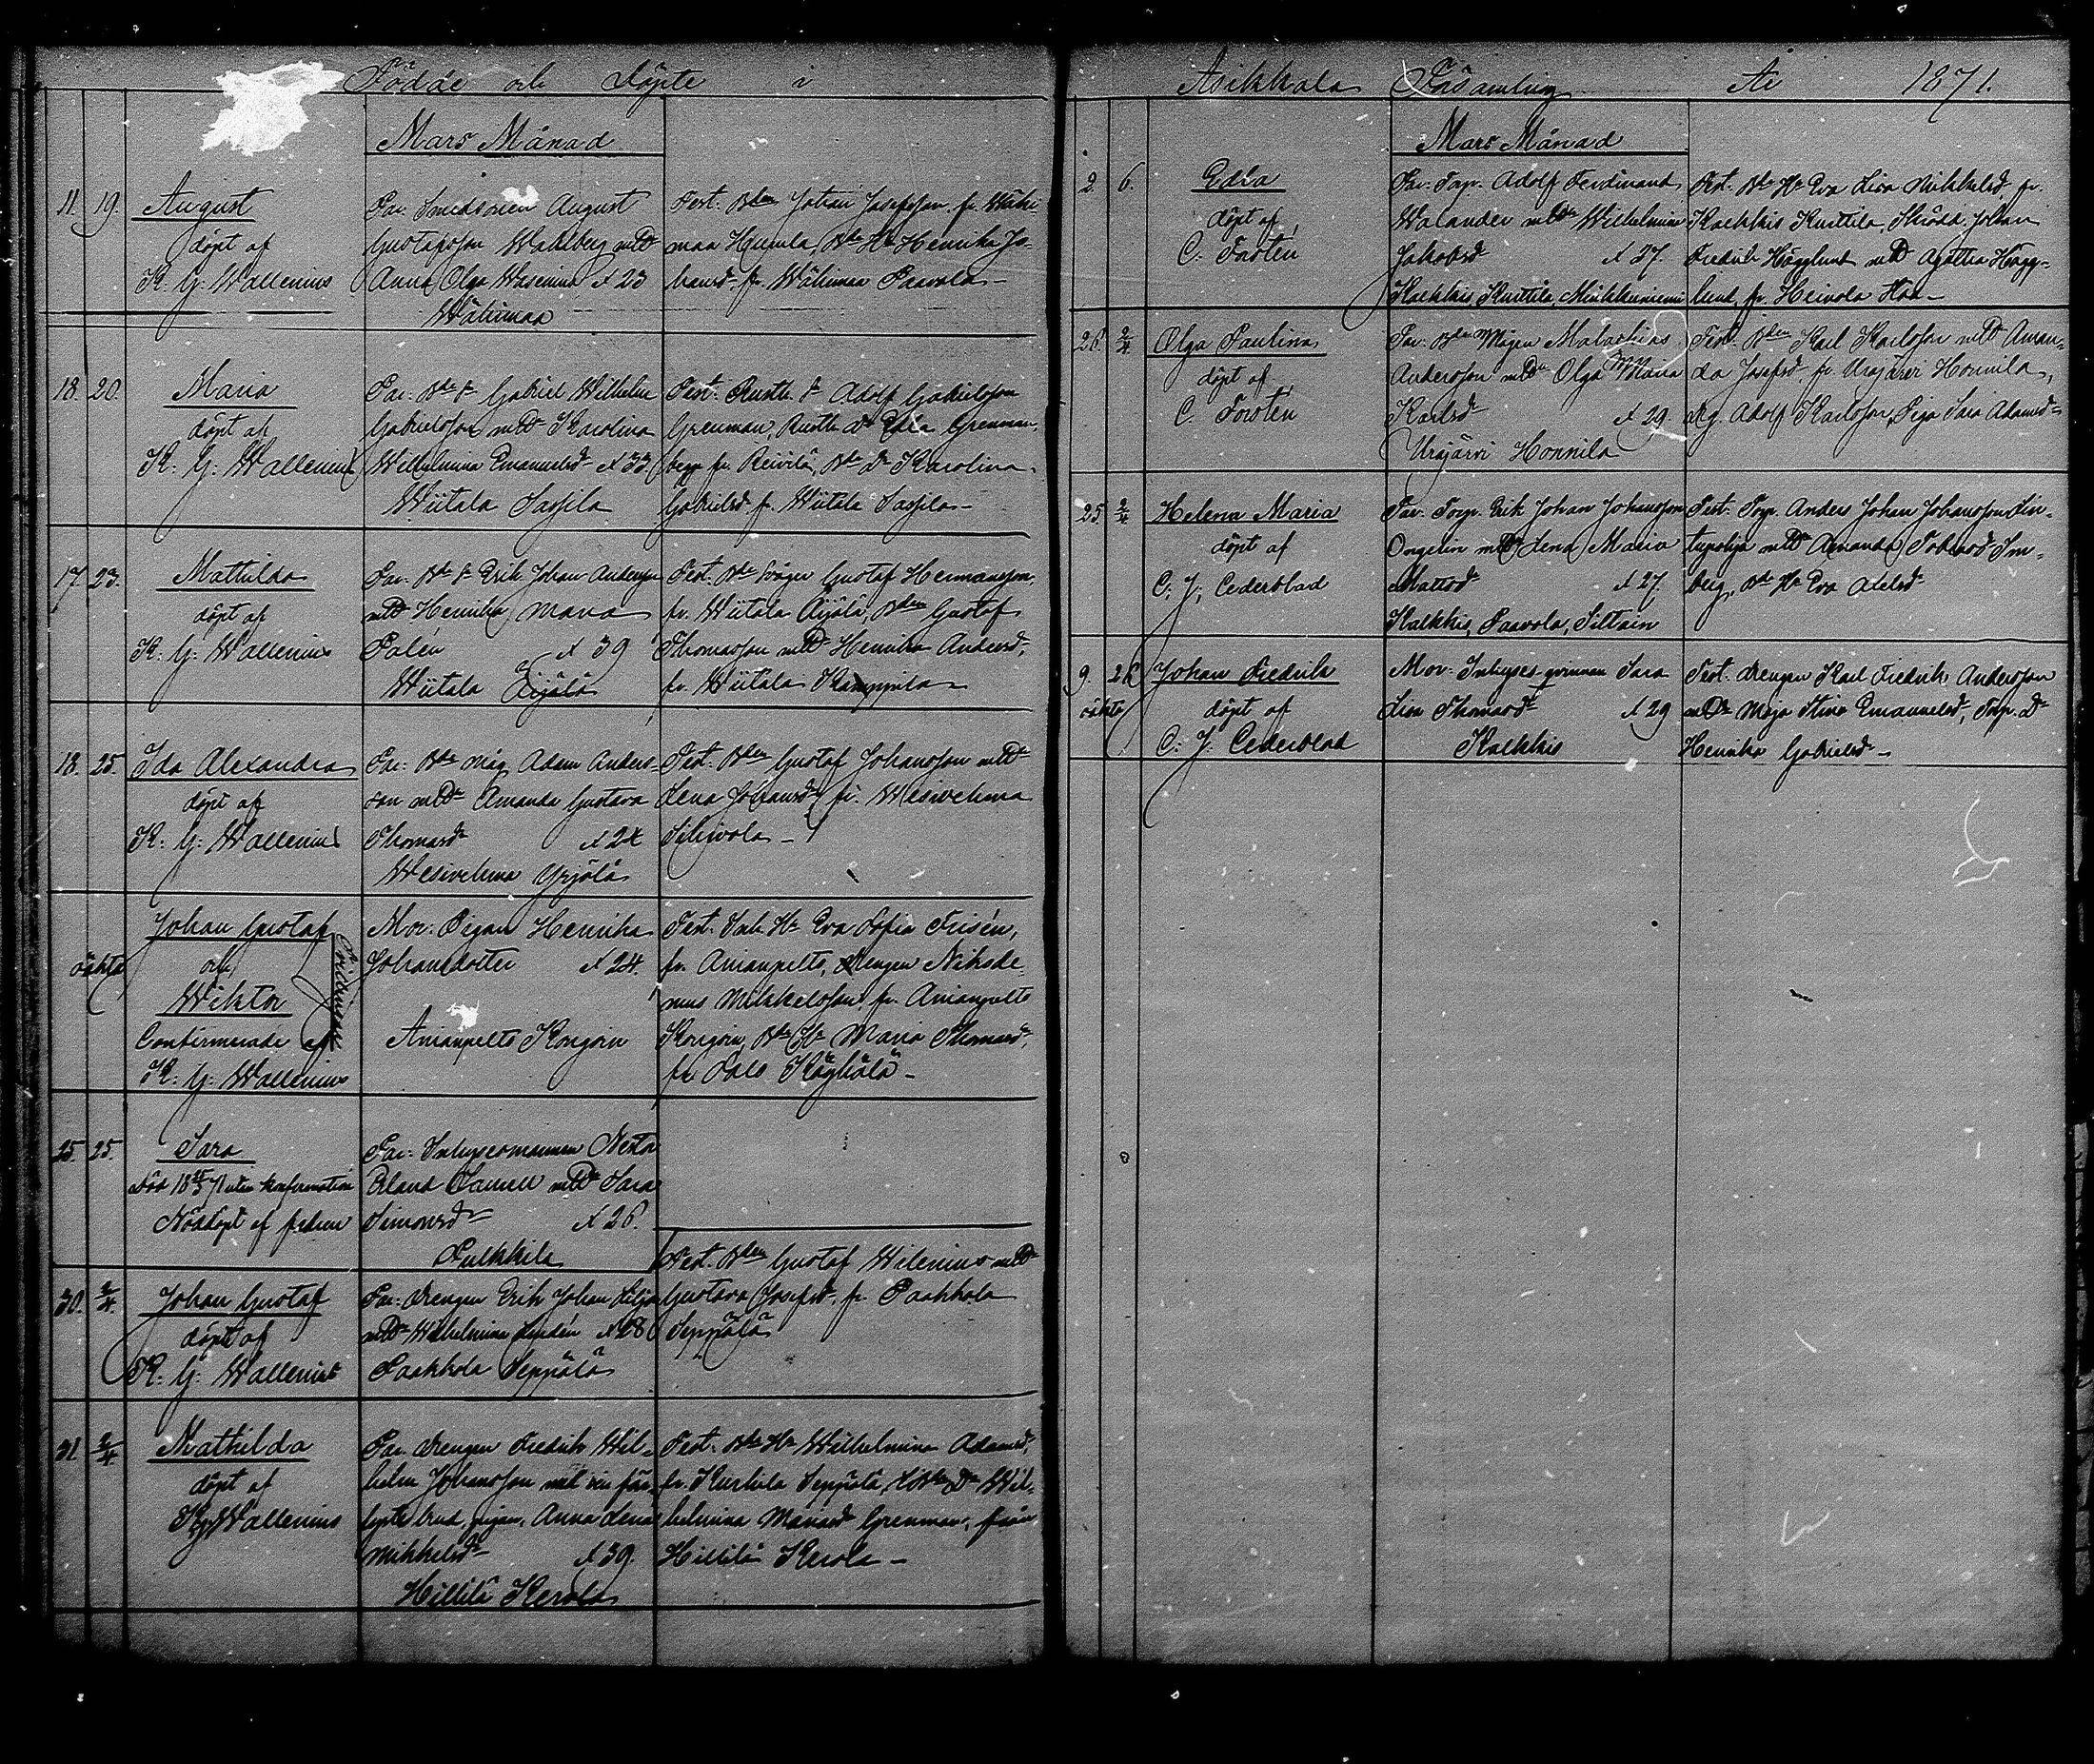 Födde och döpte i
Mars Månad
11. 19. August
döpt af
K. G. Wallenius
Par. Smedsonen August
Gustafsson Wahlberg mHu
Anna Olga Wasenius Å 23
Wähimaa
Test. Bden Johan Josefsson fr. Wähi-
maa Heumla, Bde Hu Henrika Jo-
hansdr fr. Wähimaa Paavola –
18. 20. Maria
döpt af
K. G. Wallenius
Par. Bde S. Gabriel Wilhelm
Gabrielsson mHu Karolina
Wilhelmina Emanuelsdr Å 33.
Wiitala Sassila
Test. Rusth. S. Adolf Gabrielsson
Grenman, Rusth. Dr Edla Grenman,
begge fr. Reivilä, Bde Dr Karolina
Gabrielsdr fr. Wiitala Sassila –
17. 23. Mathilda
döpt af
K. G. Wallenius
Par. Bde S. Erik Johan Andersson
mHu Henrika Maria
Palén Å 39
Wiitala Äijälä
Test. Bde Svåger Gustaf Hermansson,
fr. Wiitala Äijälä, Bden Gustaf
Thomasson mHu Henrika Andersdr,
fr. Wiitala Kamppila –
18. 25. Ida Alexandra
döpt af
K. G. Wallenius
Par. Bde måg Adam Anders-
son mHu Amanda Gustava
Thomasdr Å 24
Wesivehma Yrjölä
Test. Bden Gustaf Johansson mHu
Lena Johansdr fr. Wesivehma
Sihvola –
oäkta Johan Gustaf
och
Wiktor
Confirmerade af
K. G. Wallenius
Mor. Pigan Henrika
Johansdotter Å 24.
Anianpelto Konjoin
Test. Inh. Hu Eva Sofia Frisén,
fr. Anianpelto, Drengen Nikode-
mus Mikkelsson fr. Anianpelto
Konjoin, Bde Hu Maria Thomasdr,
fr. Salo
25. 25. Sara
död utan konfirmation
Nöddöpt af fadren
Par. Inhysesmannen Nestor
Samuel mHu Sara
Simonsdr Å 26.
Pulkkila
30. 2/4. Johan Gustaf
döpt af
K. G. Wallenius
Par. Drengen Erik Johan Lilja
mHu Wilhelmina Lindén Å 28
Paakkola Seppälä
Test. Bden Gustaf Wilenius mHu
Gustava Josefsdr. fr. Paakkola
Seppälä
31. 2/4 Mathilda
döpt af
K. G. Wallenius
Par. Drengen Fredrik Wil-
helm Johansson med sin för-
lofvte brud, pigan, Anna Lena
Mikkelsdr Å 39.
Hillilä Kerola
Test. Bde Hu Wilhelmina Adamsdr,
fr. Kurhila Seppälä, Dr Wil-
helmina Mariasdr Grenman, från
Hillilä Kerola –
Asikkala Församling År 1871.
Mars Månad
2. 6. Edla
döpt af
C. Forstén
Par. Torp. Adolf Ferdinand
Walander mHu Wilhelmina
Jakobsdr Å 27.
Kalkkis Kuittila Mukkuniemi
Test. Bde Hu Eva Lisa Mikkelsdr fr.
Kalkkis Kuittila, Skrädd. Johan
Fredrik Högglund mHu Agatha Högg-
lund, fr. Heinola
26. 2/4 Olga Paulina
döpt af
C. Forstén
Par. Bde Mågen Malachias
Andersson mHu Olga Maria
Karlsdr Å 29
Urajärvi Honnila
Test. Bden Karl Karlsson mHu Aman-
da Josefsdr. fr. Urajärvi Honnila,
drg. Adolf Karlsson, Piga Sara Adamsdr –
25. 2/4 Helena Maria
döpt af
C. J. Cederblad
Par. Torp. Erik Johan Johansson
Ongelin mHu Lena Maria
Mattsdr Å 27.
Kalkkis, Paavola, Siltain
Test. Torp. Anders Johan Johansson Lin-
tupohja mHu Amanda
berg, Bde Hu Eva Axelsdr
9. 26 Johan Fredrik
oäkta
döpt af
C. J. Cederblad
Mor. Inhyses qvinnan Sara
Lisa Thomasdr Å 29
Kalkkis
Test. drengen Karl Fredrik Andersson
mHu Maja Stina Emanuelsdr, Torp. Dr
Henrika Gabrielsdr –